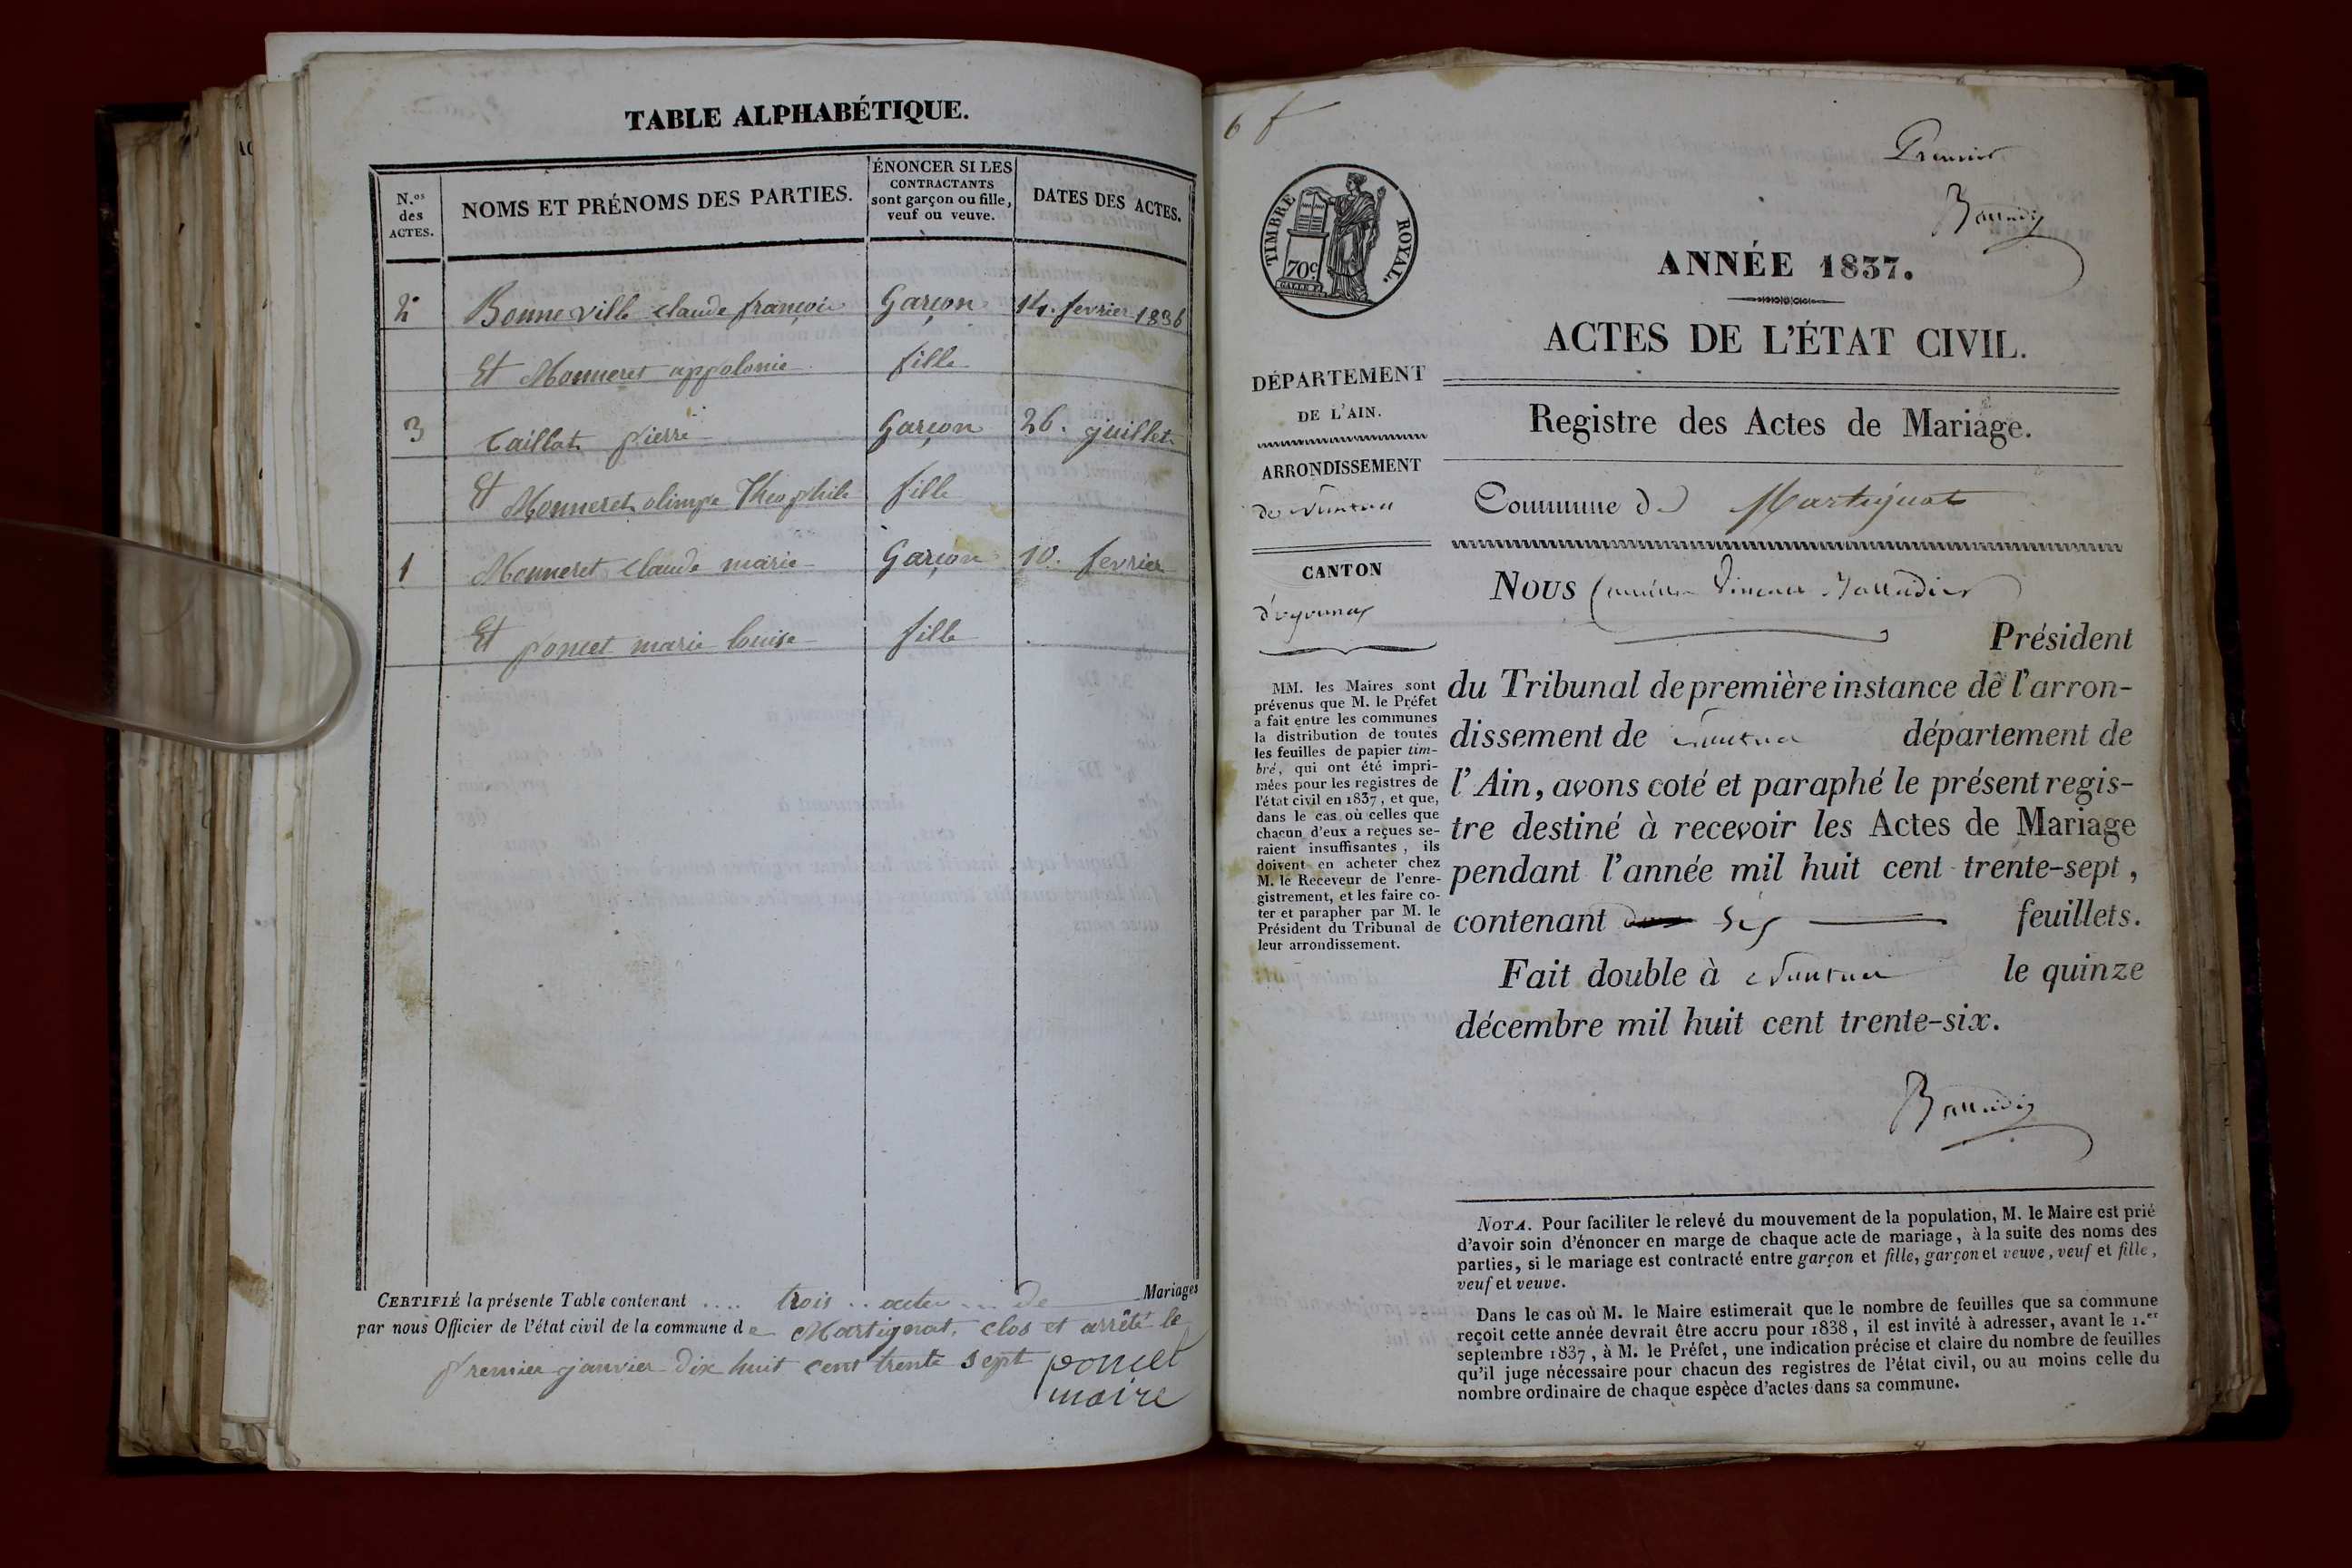 TABLE ALPHABÉTIQUE.
N.os des ACTES.
NOMS ET PRÉNOMS DES PARTIES.
ÉNONCER SI LES
CONTRACTANTS
sont garçon ou fille,
veuf ou veuve.
DATES DES ACTES.
2 Bonneville claude françois Garçon 14. fevrier 1836
Et Monneret appolonie fille
3 Caillat pierre Garçon 26. juillet
Et Monneret olimpe Theophile fille
1 Monneret claude marie Garçon 10. fevrier
Et poncet marie louise fille
CERTIFIÉ la présente Table contenant .... trois .. actes ... de Mariages
par nous Officier de l'état civil de la commune de Martignat, clos et arrêté le
premier janvier dix huit cent trente sept poncet
maire
6 f
Premier
TIMBRE ROYAL.
70c
ANNÉE 1837.
ACTES DE L'ÉTAT CIVIL.
Registre des Actes de Mariage.
DÉPARTEMENT
DE L'AIN.
ARRONDISSEMENT
de Nantua
CANTON
d'oyonnax
MM. les Maires sont
prévenus que M. le Préfet
a fait entre les communes
la distribution de toutes
les feuilles de papier tim-
bré, qui ont été impri-
mées pour les registres de
l'état civil en 1837, et que,
dans le cas où celles que
chacun d'eux a reçues se-
raient insuffisantes, ils
doivent en acheter chez
M. le Receveur de l'enre-
gistrement, et les faire co-
ter et parapher par M. le
Président du Tribunal de
leur arrondissement.
Commune de Martignat
NOUS
Président
du Tribunal de première instance de l'arron-
dissement de Nantua département de
l'Ain, avons coté et paraphé le présent regis-
tre destiné à recevoir les Actes de Mariage
pendant l'année mil huit cent trente-sept,
contenant six feuillets.
Fait double à Nantua le quinze
décembre mil huit cent trente-six.
NOTA. Pour faciliter le relevé du mouvement de la population, M. le Maire est prié
d'avoir soin d'énoncer en marge de chaque acte de mariage, à la suite des noms des
parties, si le mariage est contracté entre garçon et fille, garçon et veuve, veuf et fille,
veuf et veuve.
Dans le cas où M. le Maire estimerait que le nombre de feuilles que sa commune
reçoit cette année devrait être accru pour 1838, il est invité à adresser, avant le 1.er
septembre 1837, à M. le Préfet, une indication précise et claire du nombre de feuilles
qu'il juge nécessaire pour chacun des registres de l'état civil, ou au moins celle du
nombre ordinaire de chaque espèce d'actes dans sa commune.